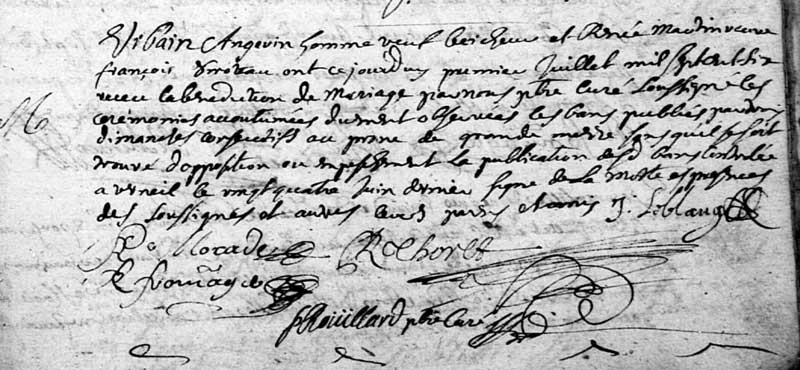 Urbain Angevin homme veuf bescheur et Renée Martin veuve
françois ont cejourdhuy premier Juillet mil sept cent dix
receu la benediction de Mariage par nous ptre curé soussigné les
ceremonies accoutumées dument observées les bans publiés par trois
dimanches consecutifs au prone de grande messe sans quil se soit
trouvé d'opposition ou empeschement la publication desd bans controlée
a verneil le vingt quatre Juin dernier signé de la Motte es presences
des soussignés et autres leurs parens et amis J. Leblanc
R
R fromage
Rouillard ptre Curé